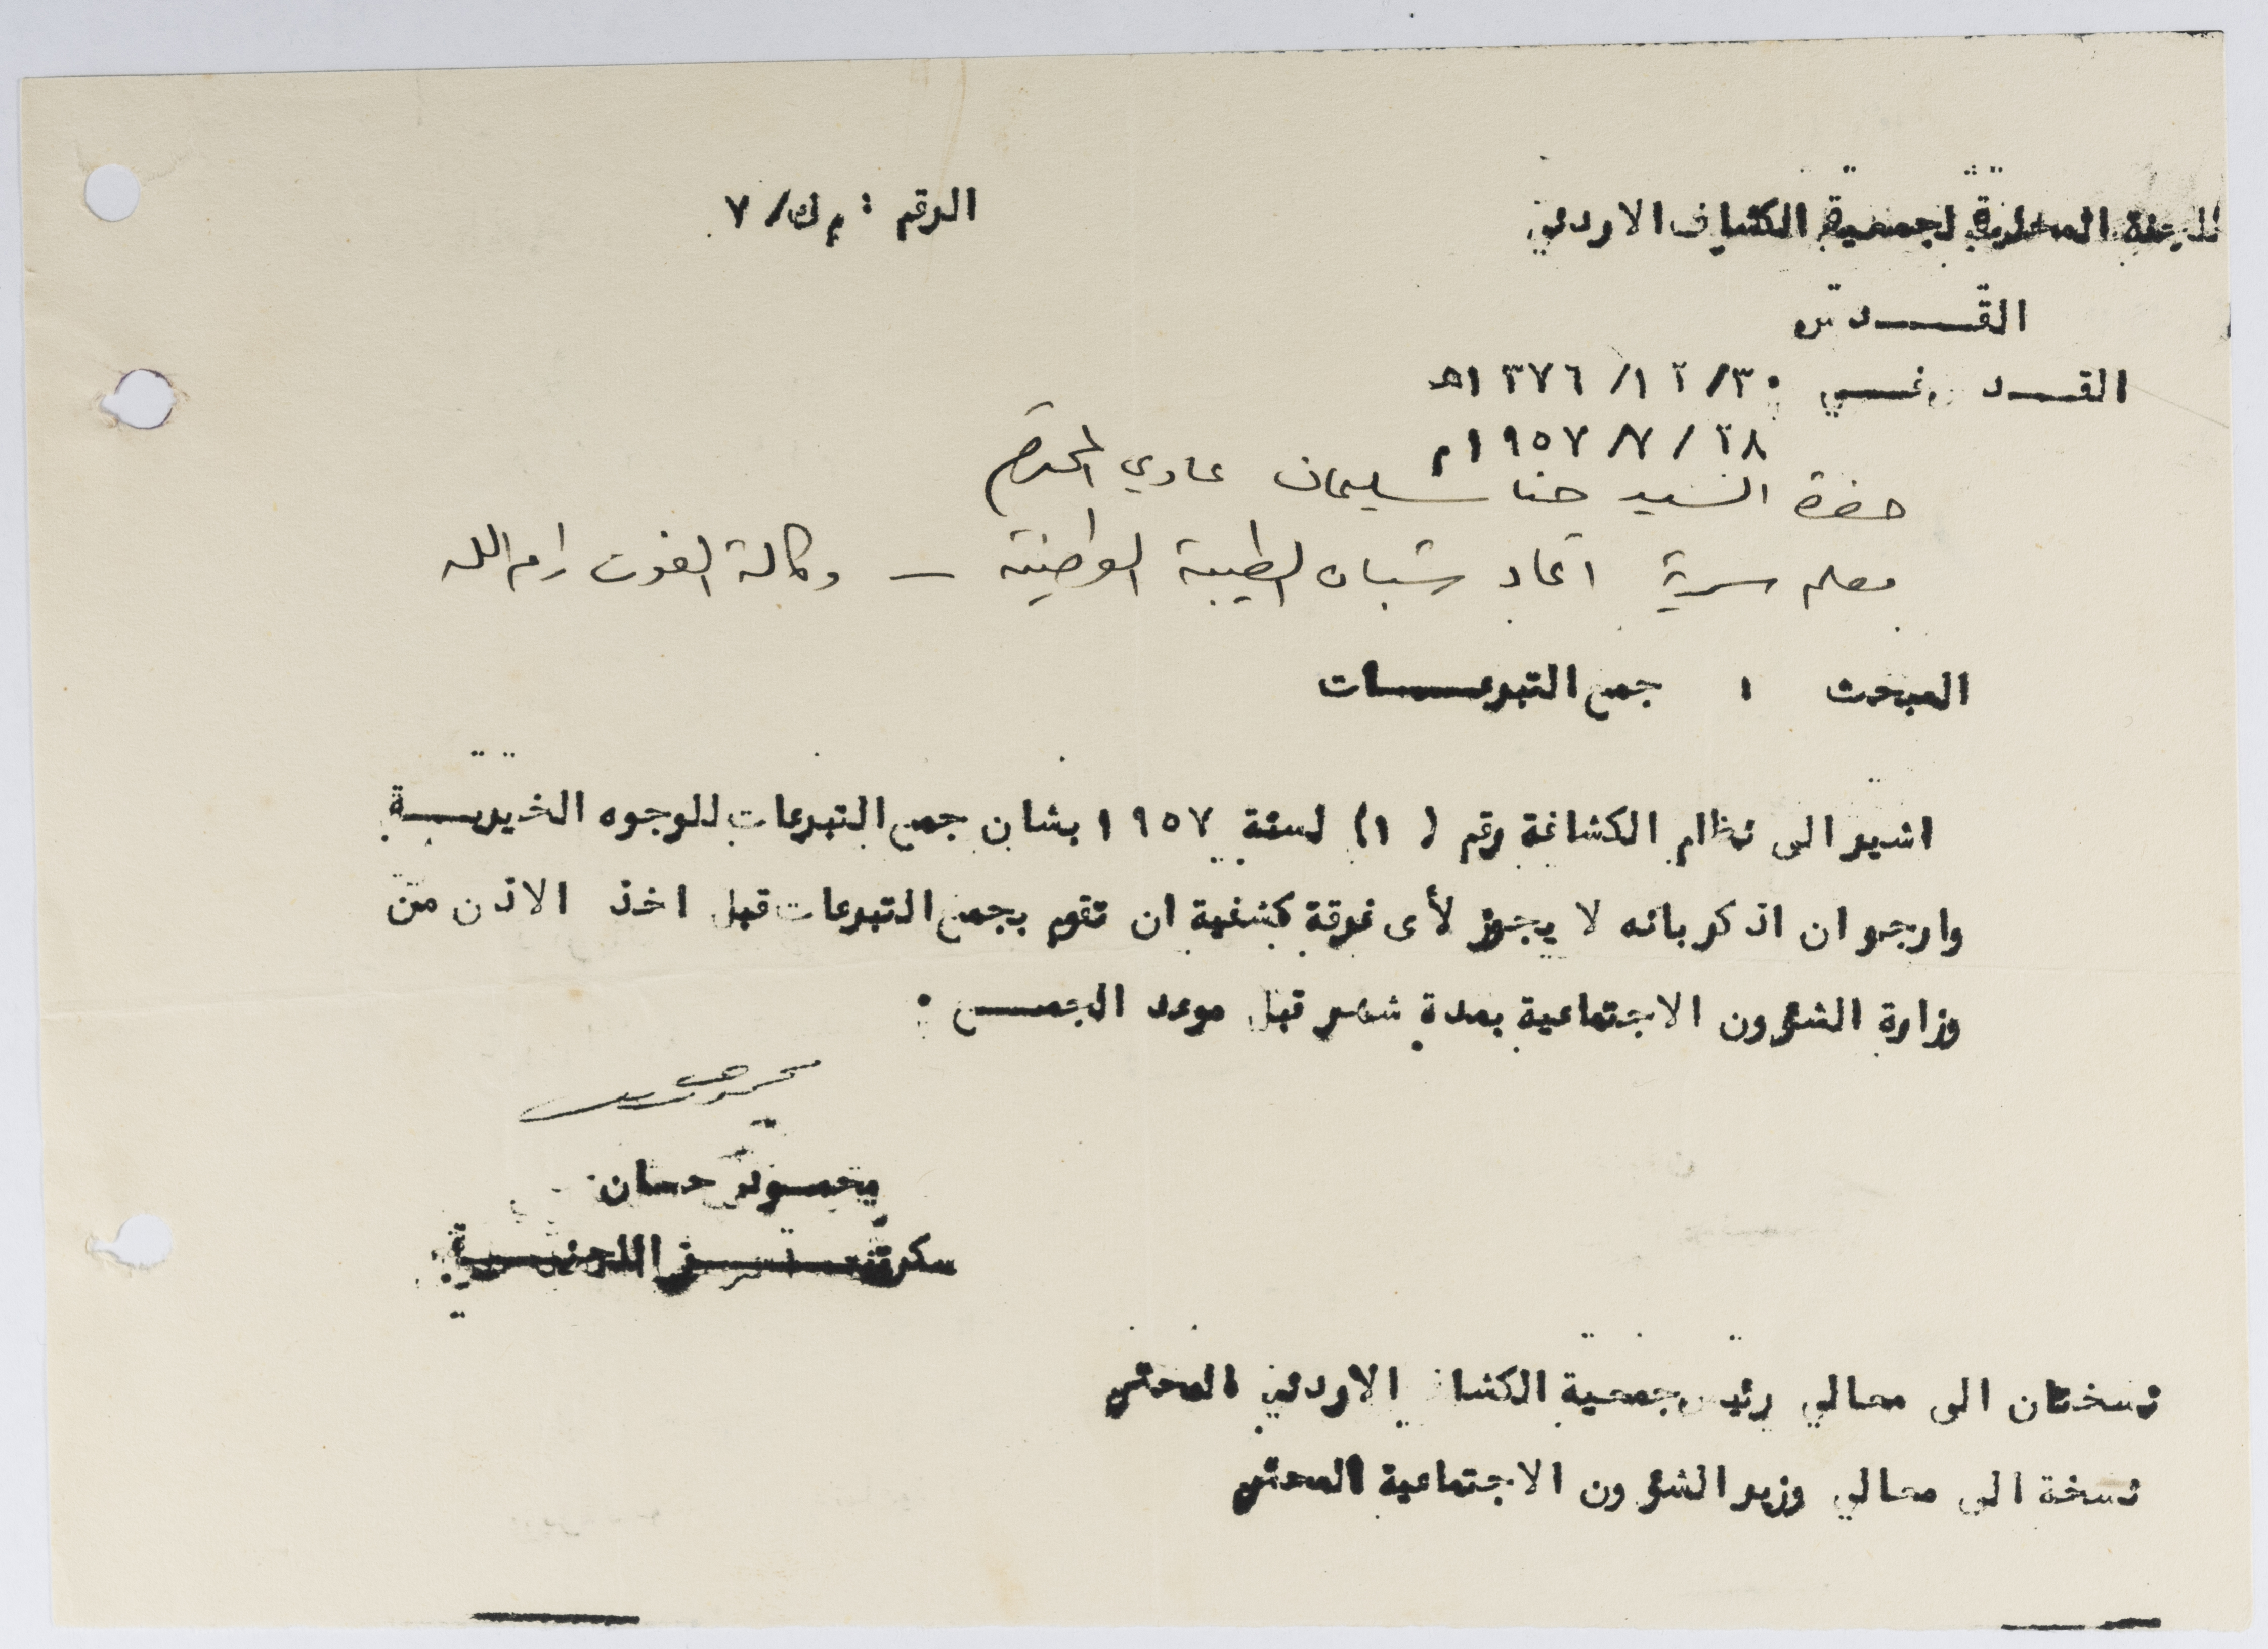 اللجنة المحلية لجمعية الكشاف الاردني
الرقم : م ك/ ٧
القـــدس
القــدس في ٣٠/ ١٢/ ١٣٧٦هـ
٢٨ / ٧/ ١٩٥٧م
حضرة السيد حنا سليمان عادي المحترم
معلم سرية اتحاد شبان الطيبة الوطنية – وكالة الغوث رام الله
المبحث : جمع التبرعـــات
اشير الى نظام الكشافة رقم (١) لسنة ١٩٥٧ بشان جمع التبرعات للوجوه الخيريــة
وارجو ان اذكر بانه لا يجوز لأى فرقة كشفية ان تقوم بجمع التبرعات قبل اخذ الاذن من
وزارة الشؤون الاجتماعية بمدة شهر قبل موعد الجمــع .
محمـود حسان
سكرتيـــر اللجنـــة
نسختان الى معالي رئيس جمعية الكشاف الاردني المحترم
نسخة الى معالي وزير الشؤون الاجتماعية المحترم